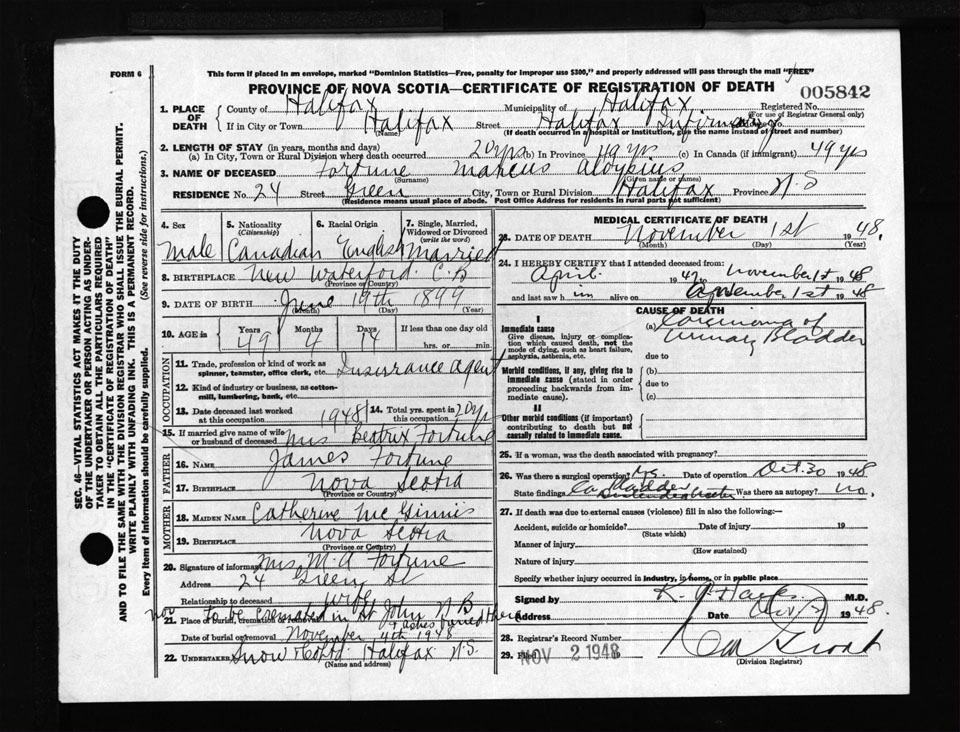 FORM 6
This form if placed in an envelope, marked "Dominion Statistics—Free, penalty for improper use $300," and properly addressed will pass through the mail "FREE"
PROVINCE OF NOVA SCOTIA—CERTIFICATE OF REGISTRATION OF DEATH
005842
SEC. 46—VITAL STATISTICS ACT MAKES IT THE DUTY
OF THE UNDERTAKER OR PERSON ACTING AS UNDER-
TAKER TO OBTAIN ALL THE PARTICULARS REQUIRED
IN THE "CERTIFICATE OF REGISTRATION OF DEATH"
AND TO FILE THE SAME WITH THE DIVISION REGISTRAR WHO SHALL ISSUE THE BURIAL PERMIT.
WRITE PLAINLY WITH UNFADING INK. THIS IS A PERMANENT RECORD.
Every item of information should be carefully supplied. (See reverse side for instructions.)
1. PLACE OF DEATH
County of Halifax Municipality of Halifax Registered No.
(For use of Registrar General only)
If in City or Town Halifax Street Halifax Infirmary
(Name) (If death occurred in a hospital or institution, give the name instead of street and number)
2. LENGTH OF STAY (in years, months and days)
(a) In City, Town or Rural Division where death occurred 20 yrs (b) In Province 49 yrs (c) In Canada (if immigrant) 49 yrs
3. NAME OF DECEASED Fortune Marcus Aloysius
(Surname) (Given name or names)
RESIDENCE No. 24 Street Green City, Town or Rural Division Halifax Province N.S
(Residence means usual place of abode. Post Office Address for residents in rural parts not sufficient)
4. Sex 5. Nationality (Citizenship) 6. Racial Origin 7. Single, Married, Widowed or Divorced (write the word)
Male Canadian English Married
8. BIRTHPLACE New Waterford C.B
(Province or Country)
9. DATE OF BIRTH June 19th 1899
(Month) (Day) (Year)
10. AGE in Years Months Days If less than one day old
49 4 14 hrs. or min.
OCCUPATION
11. Trade, profession or kind of work as spinner, teamster, office clerk, etc. Insurance Agent
12. Kind of industry or business, as cotton-mill, lumbering, bank, etc.
13. Date deceased last worked at this occupation 1948 14. Total yrs. spent in this occupation 20 yrs
15. If married give name of wife or husband of deceased Mrs Beatrix Fortune
FATHER
16. NAME James Fortune
17. BIRTHPLACE Nova Scotia
(Province or Country)
MOTHER
18. MAIDEN NAME Catherine McGinnis
19. BIRTHPLACE Nova Scotia
(Province or Country)
20. Signature of informant Mrs M.A Fortune
Address 24 Green St
Relationship to deceased wife
Nov to be cremated in St John N B
& ashes buried there
21. Place of burial, cremation or removal
Date of burial or removal November 4th 1948
22. UNDERTAKER Snow & Co Ltd Halifax N.S.
(Name and address)
MEDICAL CERTIFICATE OF DEATH
23. DATE OF DEATH November 1st 1948.
(Month) (Day) (Year)
24. I HEREBY CERTIFY that I attended deceased from:
April 1947 to November 1st 1948
and last saw him alive on November 1st 1948
CAUSE OF DEATH
I
Immediate cause (a) Carcinoma of
Urinary Bladder
Give disease, injury or complication which caused death, not the mode of dying, such as heart failure, asphyxia, asthenia, etc.
due to
Morbid conditions, if any, giving rise to immediate cause (stated in order proceeding backwards from immediate cause).
(b)
due to
(c)
II
Other morbid conditions (if important) contributing to death but not causally related to immediate cause.
25. If a woman, was the death associated with pregnancy?
26. Was there a surgical operation? Yes. Date of operation Oct. 30 1948
State findings Ca bladder Was there an autopsy? No.
27. If death was due to external causes (violence) fill in also the following:—
Accident, suicide or homicide? Date of injury 19
(State which)
Manner of injury
(How sustained)
Nature of injury
Specify whether injury occurred in industry, in home, or in public place
Signed by M.D.
Address Date Nov 2 1948.
28. Registrar's Record Number
29. Filed NOV 2 1948 19
(Division Registrar)